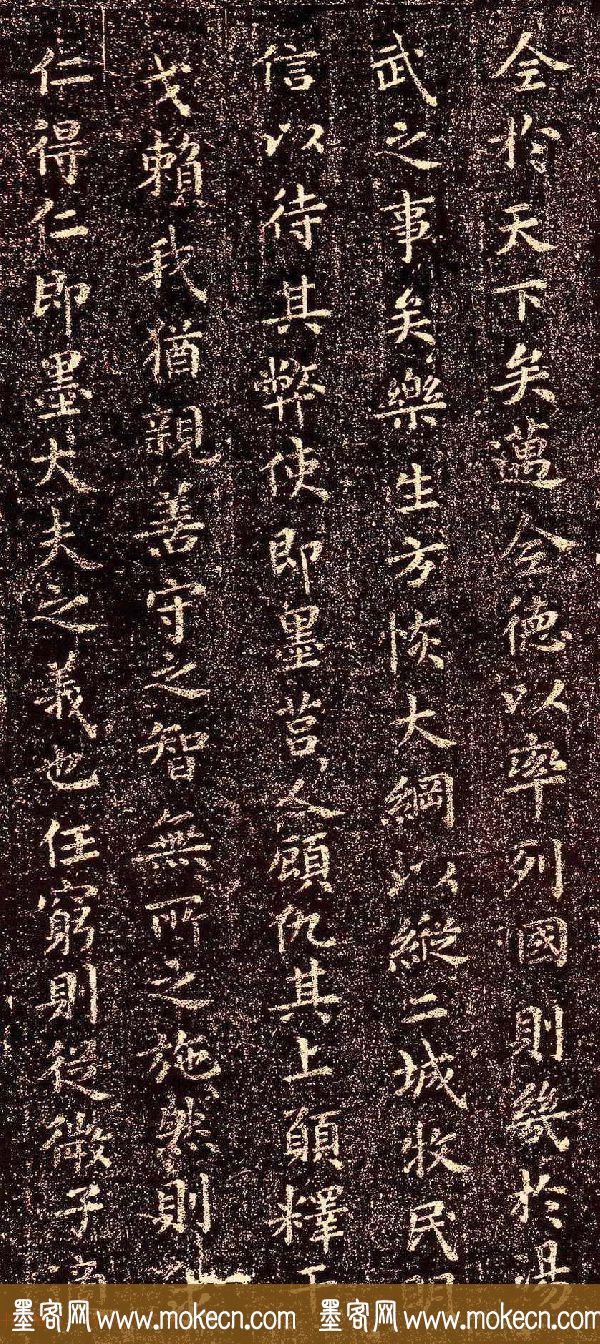 全於天下矣邁全德以率列國則幾於湯
武之事矣樂生方恢大綱以縱二城收民明
信以待其弊使即墨莒人顧仇其上願釋干
戈賴我猶親善守之智無所之施然則求
仁得仁即墨大夫之義也任窮則從微子適
墨客网 www.mokecn.com 墨客网 www.mokecn.com